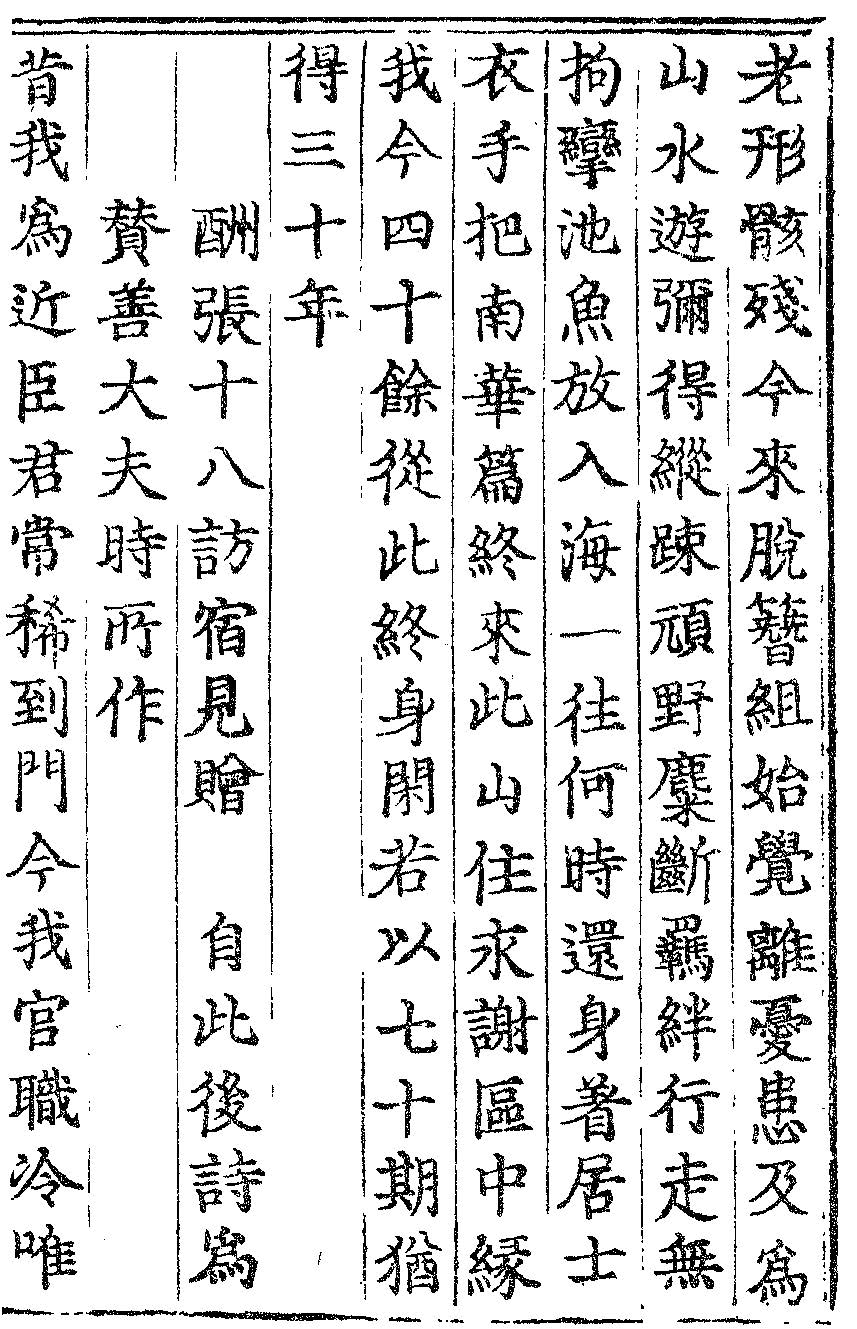 老形骸殘今來脫簪組始覺離憂患及爲
山水遊彌得縱踈頑野麋斷羈絆行走無
拘攣池魚放入海一往何時還身著居士
衣手把南華篇終來此山住永謝區中縁
我今四十餘從此終身閑若以七十期猶
得三十年
酬張十八訪宿見贈　自此後詩爲
贊善大夫時所作
昔我爲近臣君常稀到門今我官職冷唯